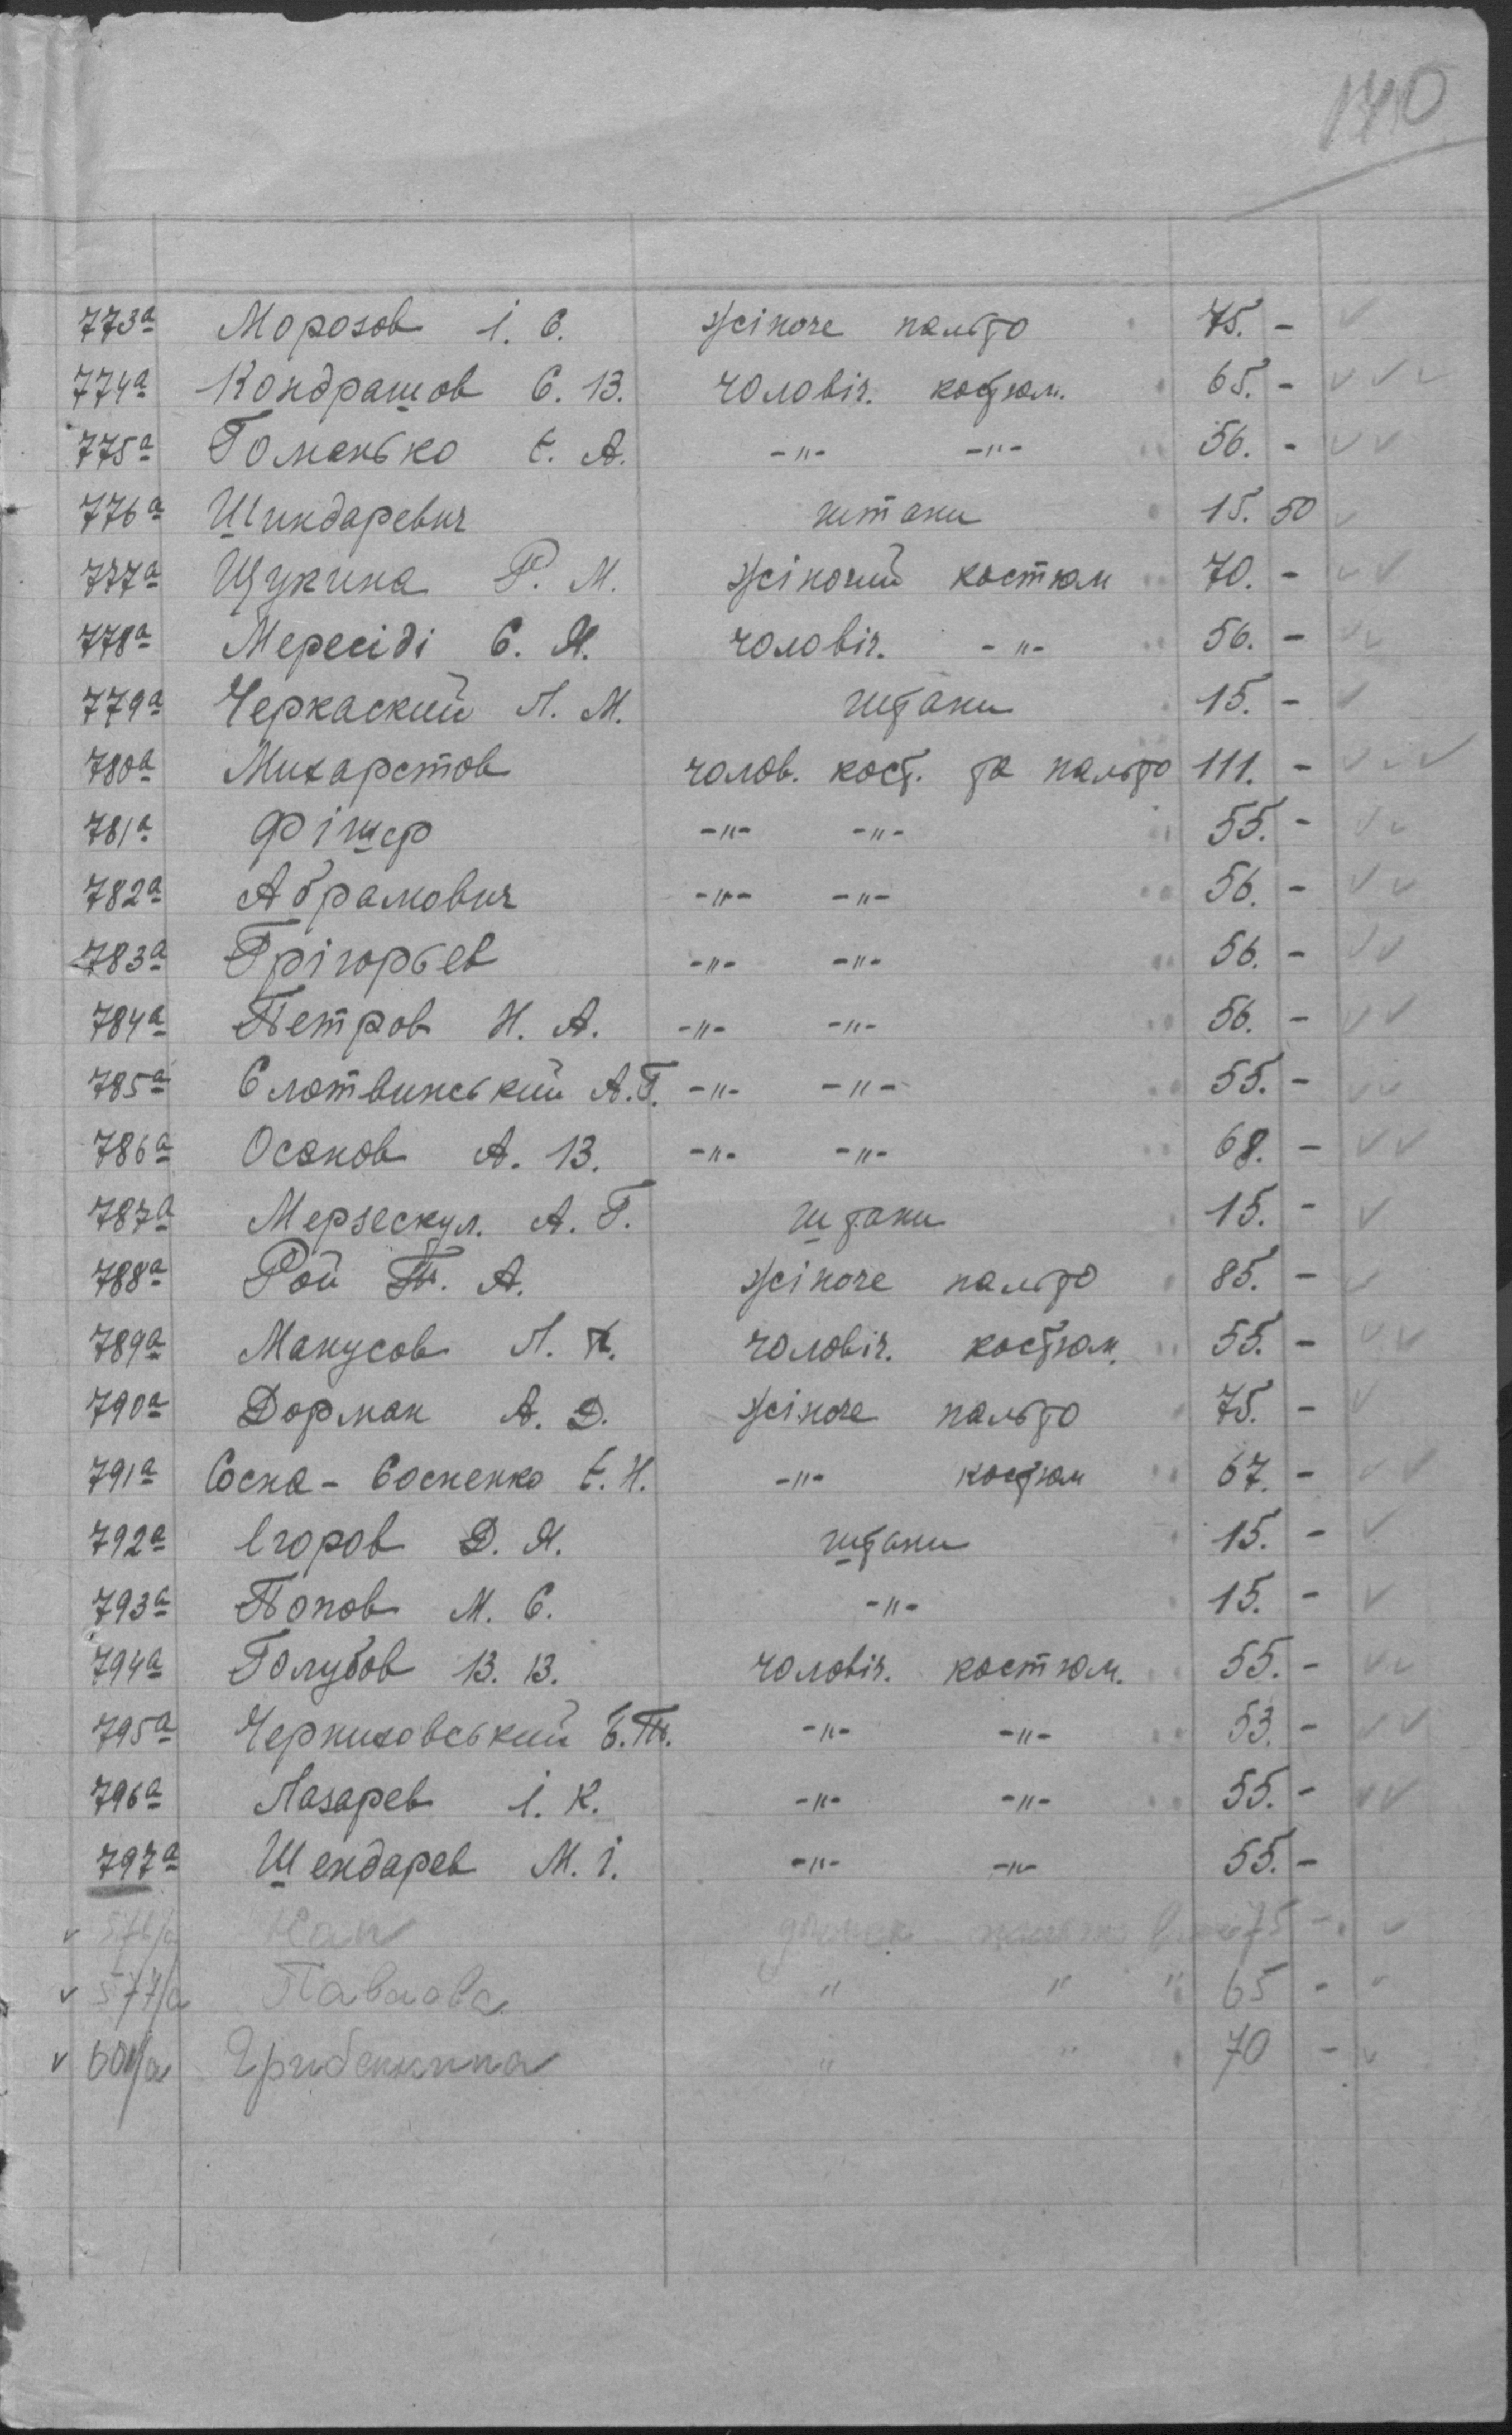 140
773а Морозов І. С. жіноче пальто 75. - ✓
774а Кондрашов С. В. чоловіч. костюм. 65. - ✓ ✓ ✓
775а Гоменько Є. А. -"- -"- 56. - ✓ ✓
776а Шиндаревич штани 15. 50 ✓
777а Щукина Р. М. жіночий костюм 70. - ✓ ✓
778а Мересіді С. Я. чоловіч. -"- 56. - ✓ ✓
779а Черкаский Л. М. штани 15. - ✓
780а Михарстов чолов. кост. та пальто 111. - ✓ ✓ ✓
781а Фішер -"- -"- 55. - ✓ ✓
782а Абрамович -"- -"- 56. - ✓ ✓
783а Грігорьев -"- -"- 56. - ✓ ✓
784а Петров Н. А. -"- -"- 56. - ✓ ✓
785а Слотвинський А. Г. -"- -"- 55. - ✓ ✓
786а Осанов А. В. -"- -"- 68. - ✓ ✓
787а Мерзескул. А. Г. штани 15. - ✓
788а Рой Т. А. жіноче пальто 85. - ✓
789а Манусов Л. чоловіч. костюм. 55. - ✓ ✓
790а Дорман А. Д. жіноче пальто 75. - ✓
791а Сосна-Сосненко Є. Н. -"- костюм 67. - ✓ ✓
792а Єгоров Д. Я. штани 15. - ✓
793а Попов М. С. -"- 15. - ✓
794а Голубов В. В. чоловіч. костюм. 55. - ✓ ✓
795а Черниховський Б. Т. -"- -"- 53. - ✓ ✓
796а Лазарев І. К. -"- -"- 55. - ✓ ✓
797а Шендарев М. І. -"- -"- 55. -
✓ Кан 75 - ✓
✓ 577/а Павлова " " " 65 - ✓
✓ 601/а Грибенкина " " 70 - ✓